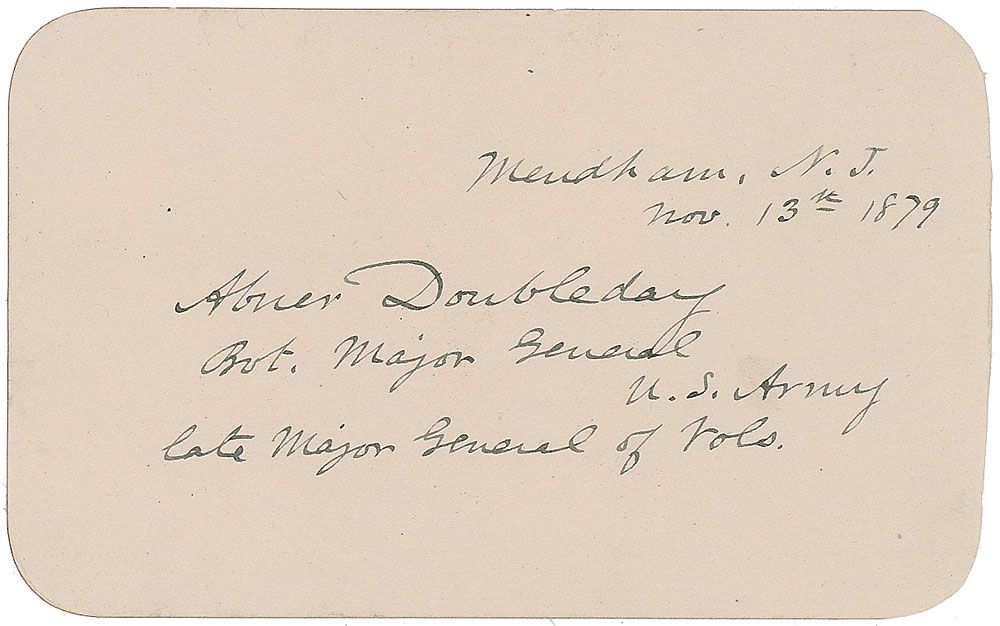 Mendham, N.J.
Nov. 13th 1879
Abner Doubleday
Bvt. Major General
U.S. Army
late Major General of Vols.